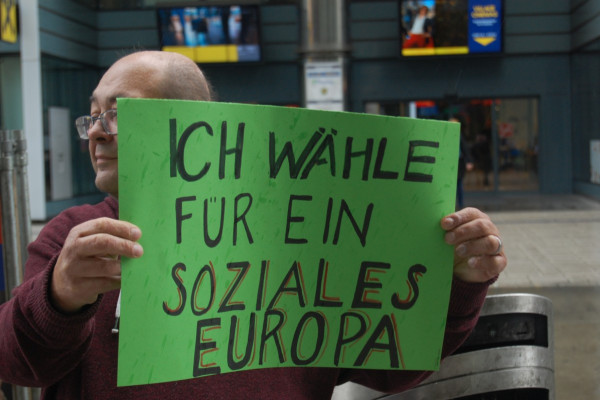 ICH WÄHLE
FÜR EIN
SOZIALES
EUROPA